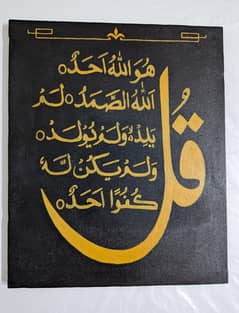 قُل
هُوَ اللهُ اَحَدٌ ○
اَللهُ الصَّمَدُ ○ لَمْ
يَلِدْ ○ وَلَمْ يُوْلَدْ ○
وَلَمْ يَكُنْ لَّهٗ
كُفُوًا اَحَدٌ ○